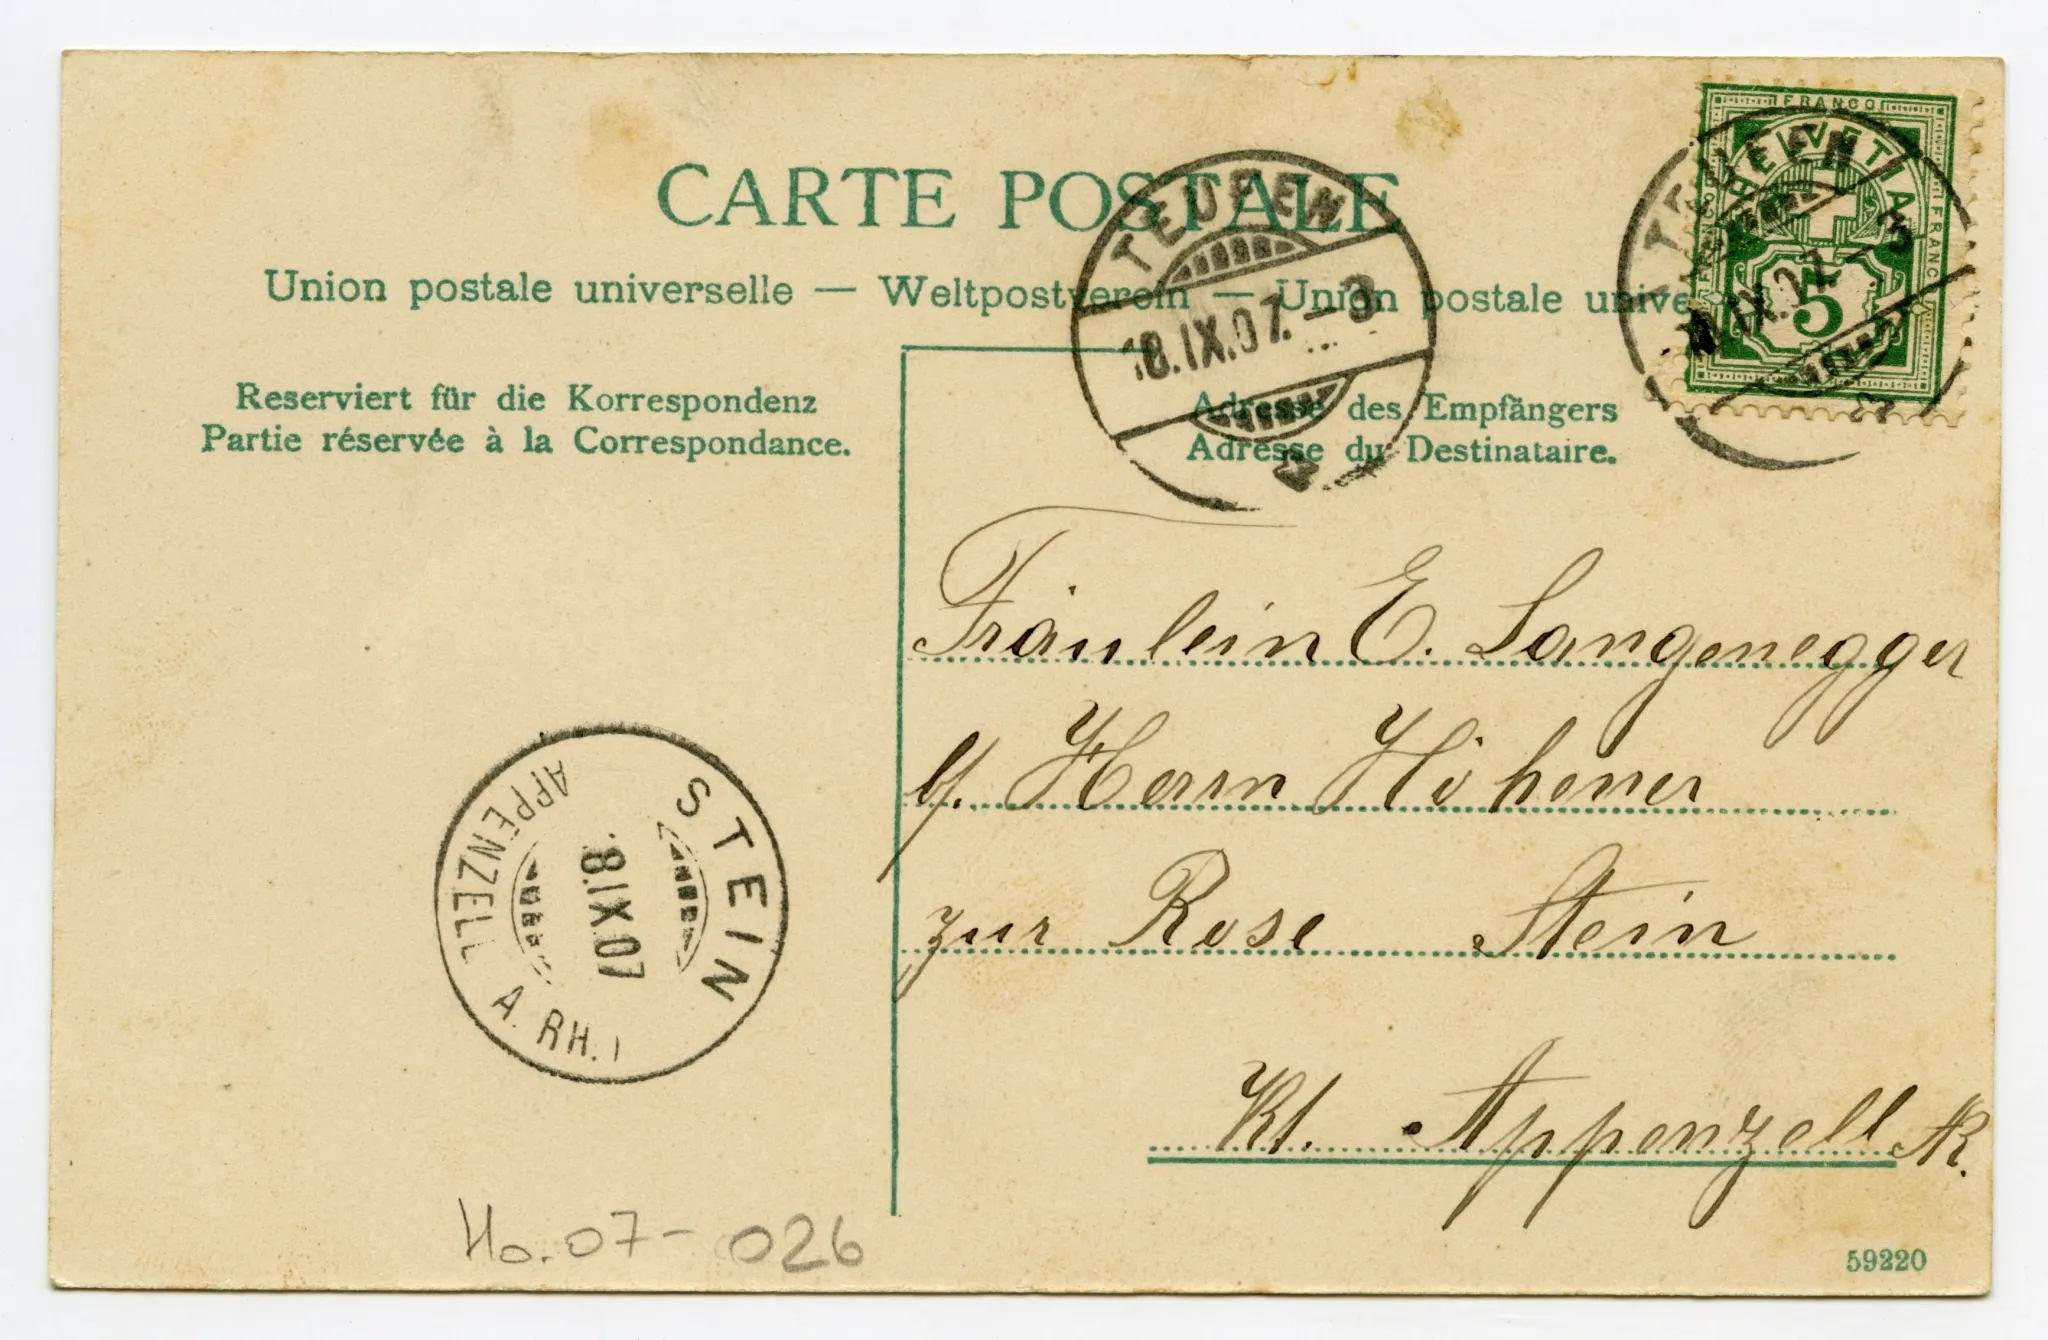 CARTE POSTALE
Union postale universelle — Weltpostverein — Union postale unive
Reserviert für die Korrespondenz
Partie réservée à la Correspondance.
Adresse des Empfängers
Adresse du Destinataire.
FRANCO
HELVETIA
FRANCO
FRANCO
5
TEUFEN
18.IX.07.–3
TEUFEN
IX.07.–3
Fräulein E. Langenegger
b/. Herrn Höhener
zur Rose Stein
Kt. Appenzell AR.
STEIN
8.IX.07
APPENZELL A. RH.
Ho.07-026
59220